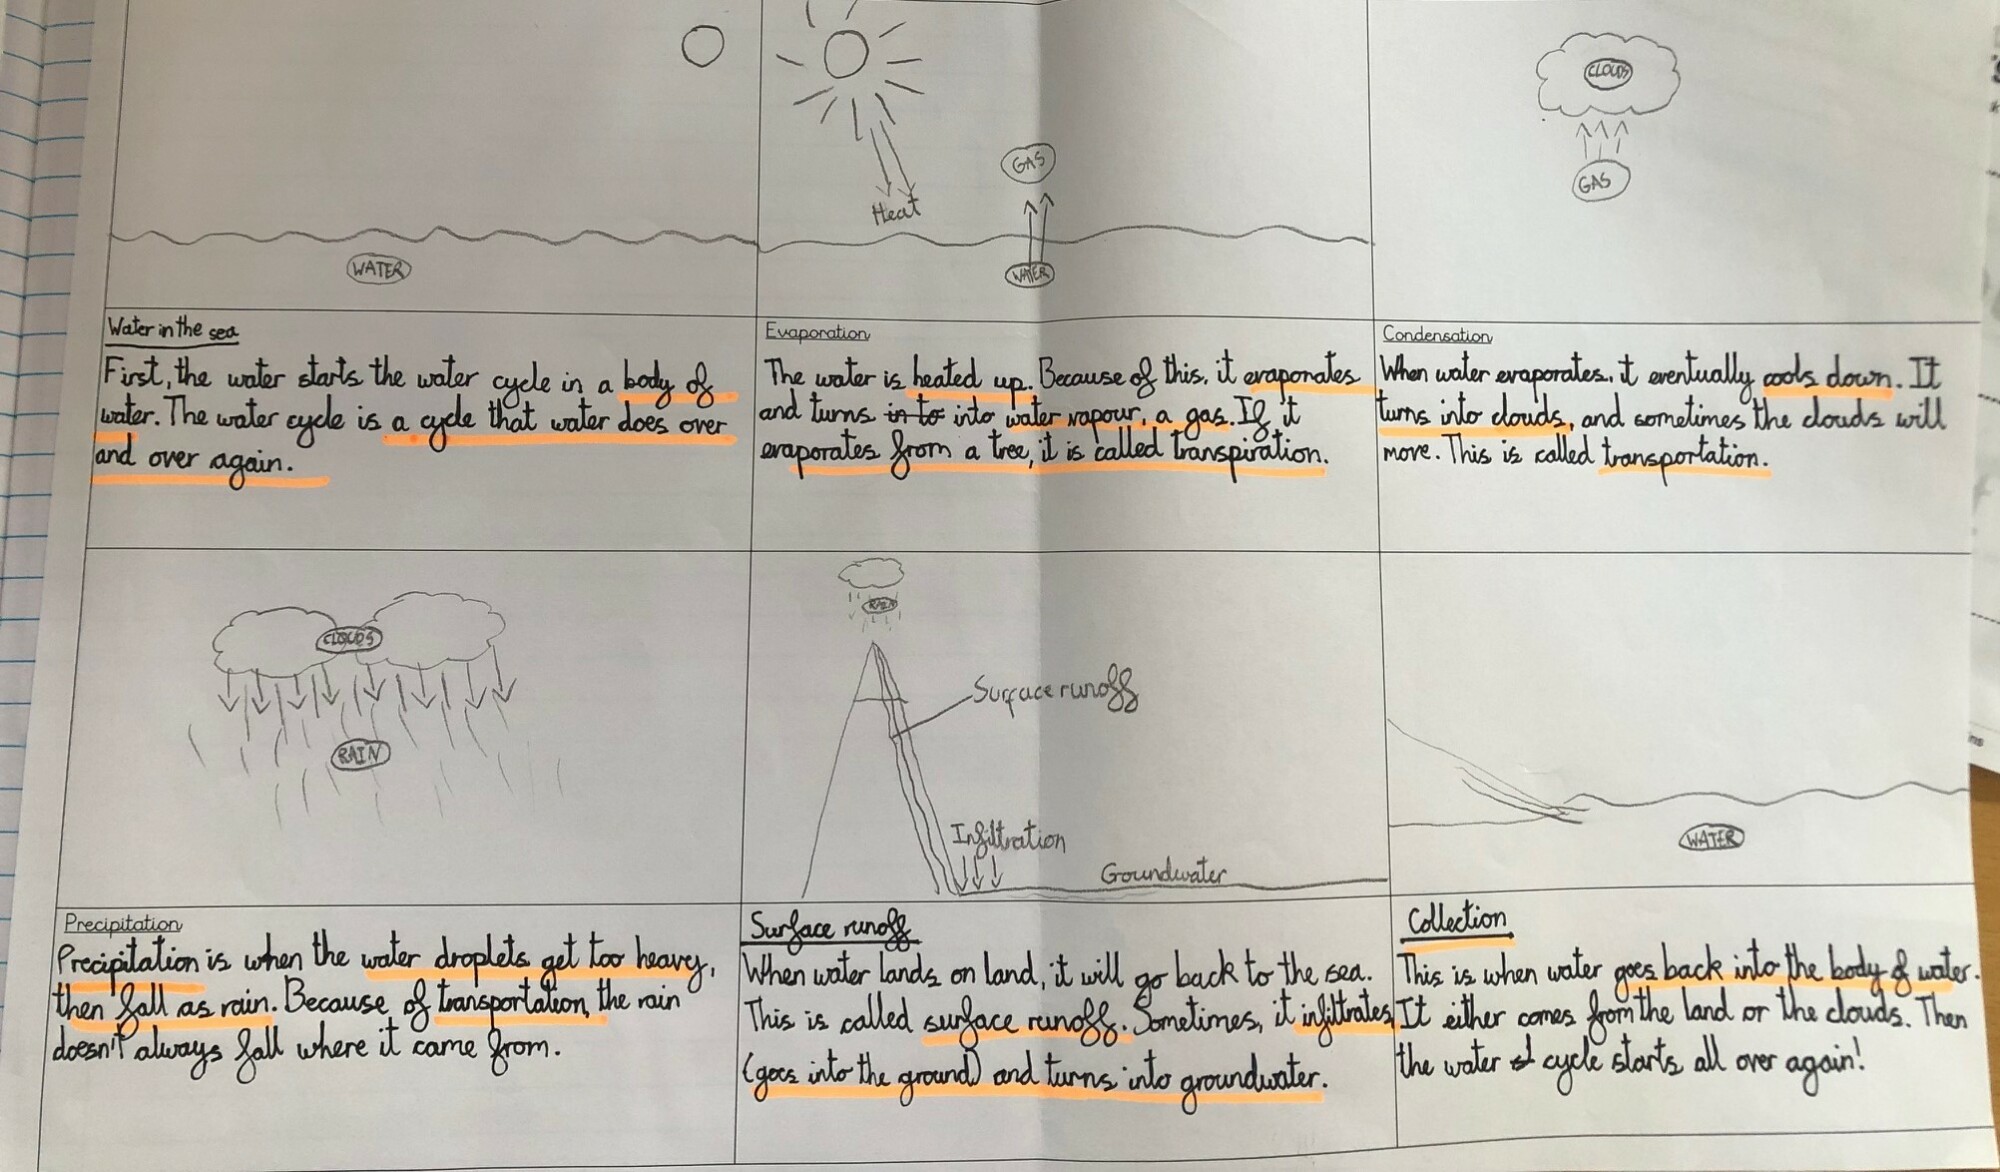 WATER
Heat
GAS
WATER
CLOUDS
GAS
Water in the sea
First, the water starts the water cycle in a body of
water. The water cycle is a cycle that water does over
and over again.
Evaporation
The water is heated up. Because of this, it evaporates
and turns in to into water vapour, a gas. If it
evaporates from a tree, it is called transpiration.
Condensation
When water evaporates, it eventually cools down. It
turns into clouds, and sometimes the clouds will
move. This is called transportation.
CLOUDS
RAIN
RAIN
Surface runoff
Infiltration
Groundwater
WATER
Precipitation
Precipitation is when the water droplets get too heavy,
then fall as rain. Because of transportation, the rain
doesn't always fall where it came from.
Surface runoff
When water lands on land, it will go back to the sea.
This is called surface runoff. Sometimes, it infiltrates
(goes into the ground) and turns into groundwater.
Collection
This is when water goes back into the body of water.
It either comes from the land or the clouds. Then
the water cycle starts all over again!